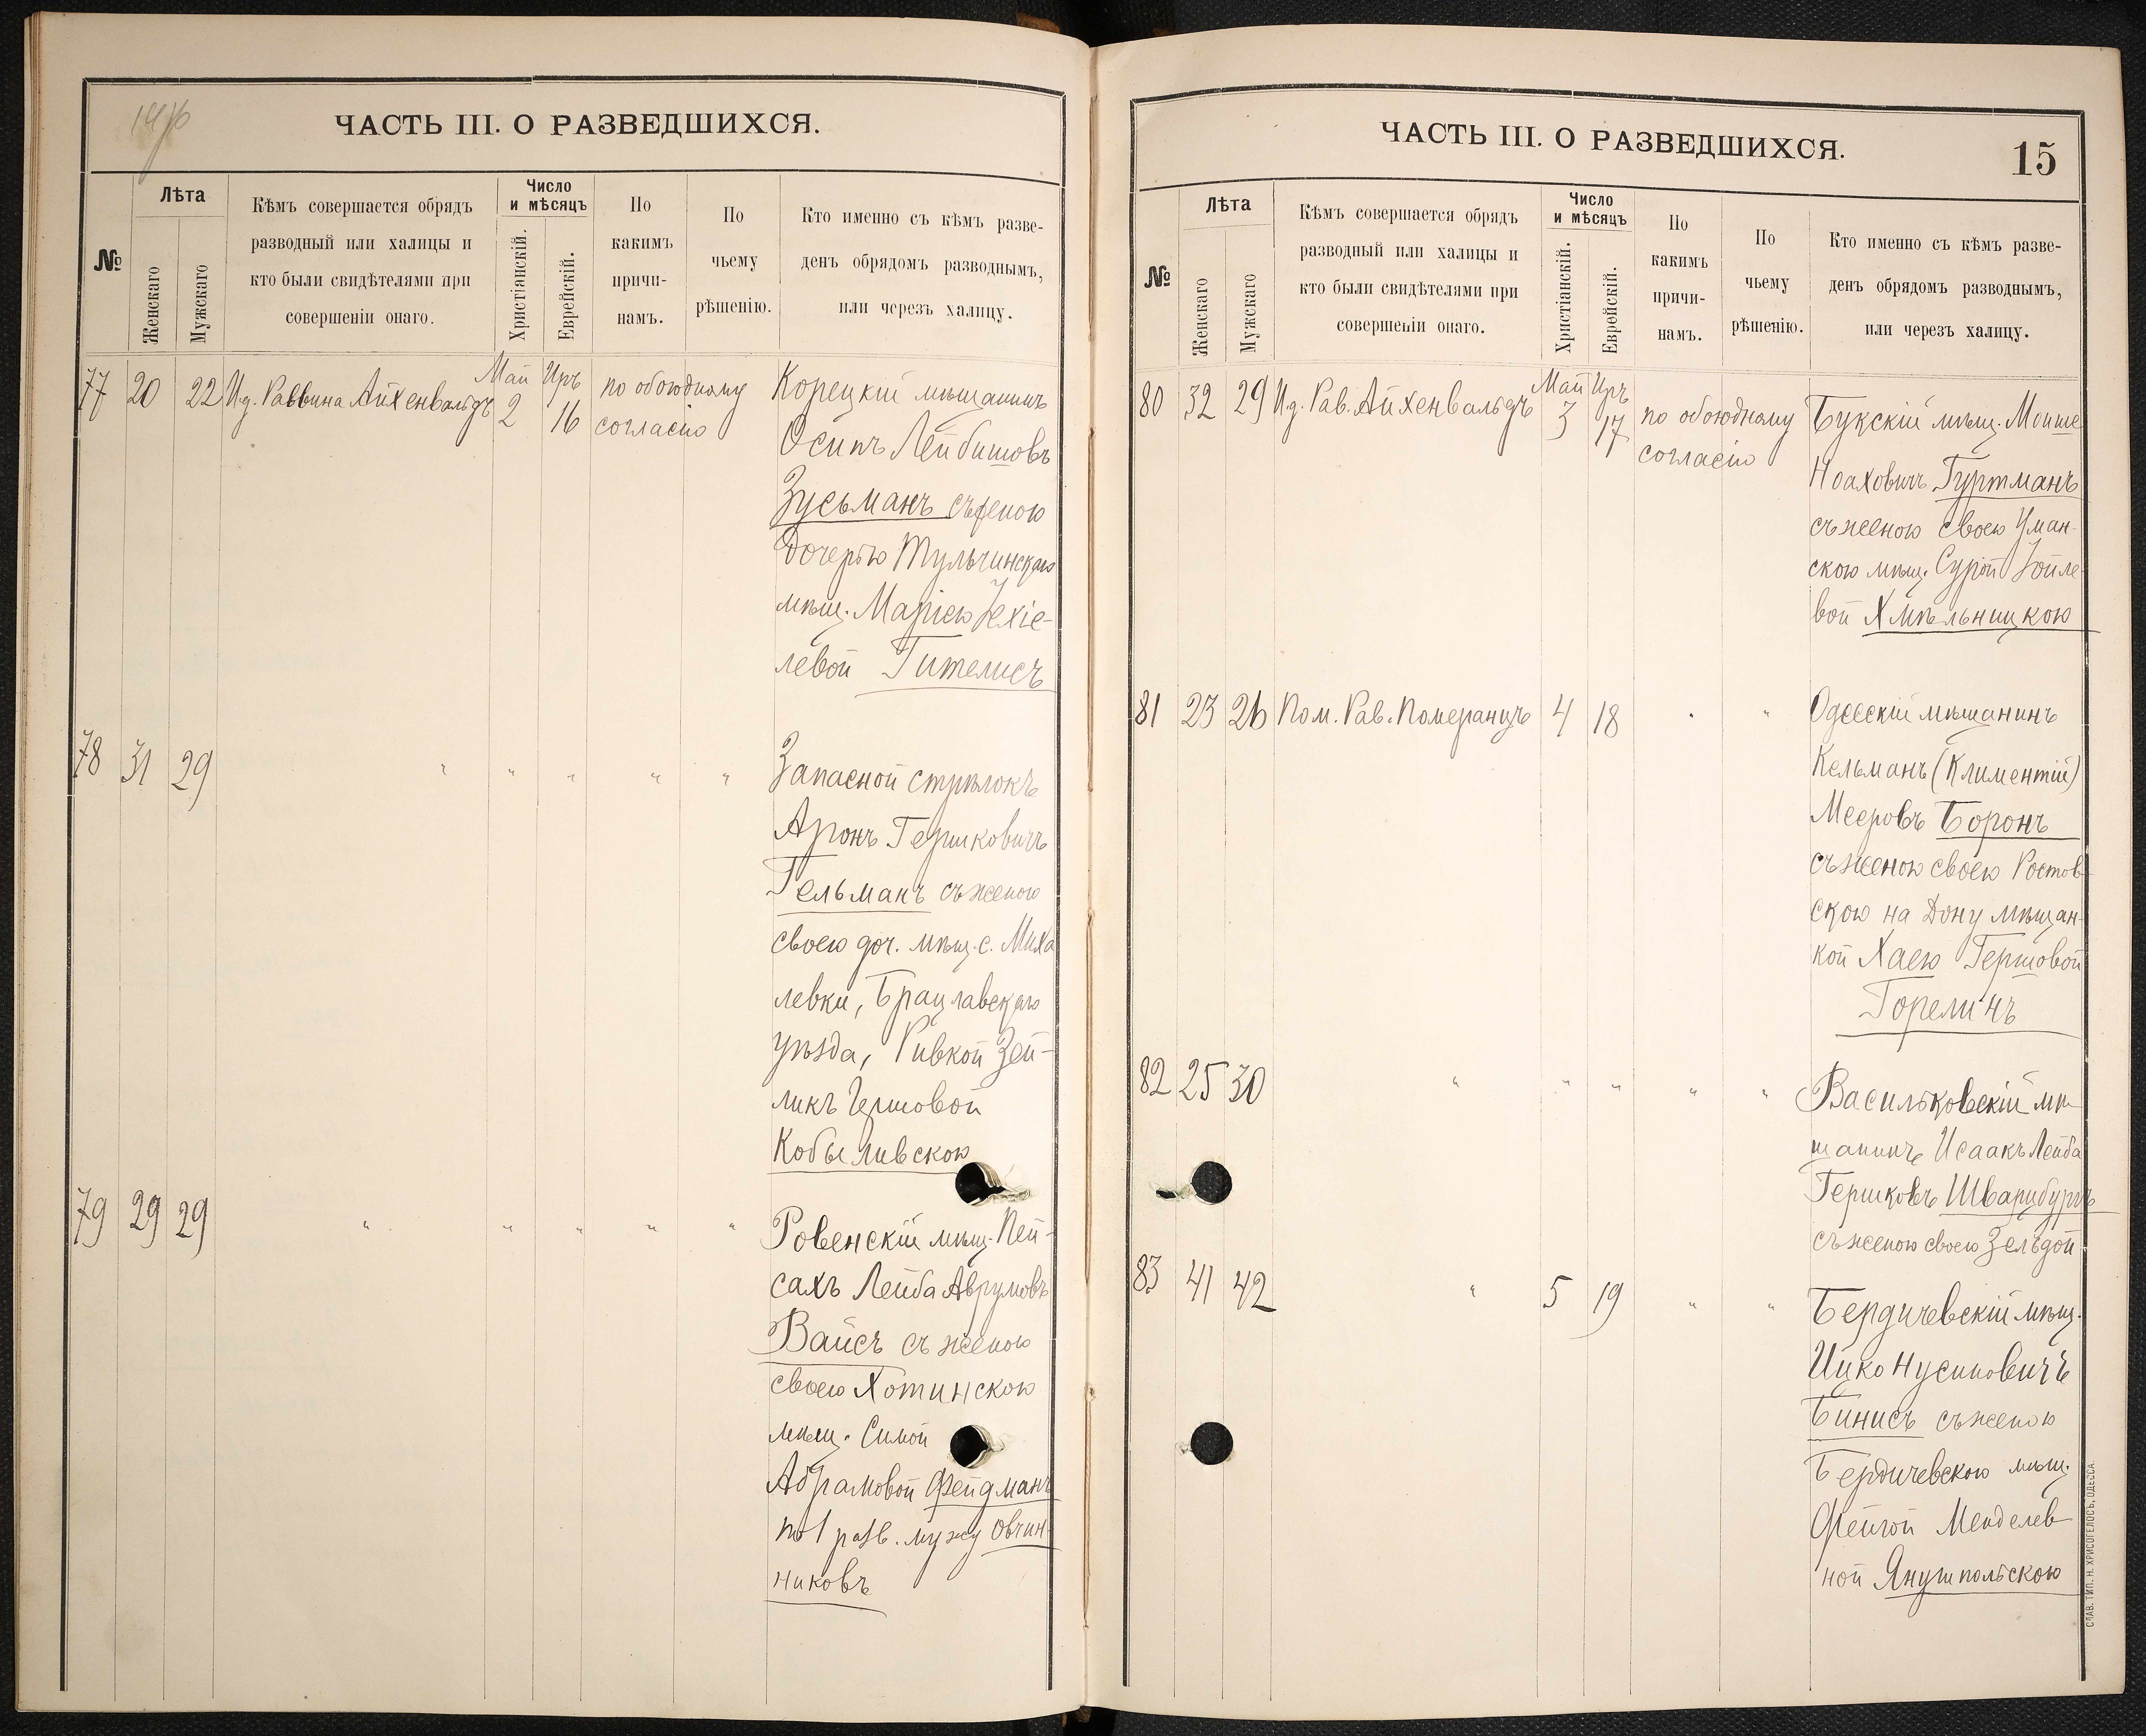 ЧАСТЬ III. О РАЗВЕДШИХСЯ.
№
Лѣта
Женскаго
Мужскаго
Кѣмъ совершается обрядъ
разводный или халицы и
кто были свидѣтелями при
совершеніи онаго.
Число
и мѣсяцъ
Христіанскій.
Еврейскій.
По
какимъ
причи-
намъ.
По
чьему
рѣшенію.
Кто именно съ кѣмъ разве-
денъ обрядомъ разводнымъ,
или черезъ халицу.
77 20 22 И.д. Раввина Айхенвальдъ Май 2 Иръ 16 по обоюдному
согласію
Корецкій мѣщанинъ
Осипъ Лейбишовъ
Зусьманъ съ женою
дочерью Тульчинскаго
мѣщ. Маріею Іехіе-
левой Гителисъ
78 31 29 " " " " "
Запасной стрѣлокъ
Аронъ Гершковичъ
Гельманъ съ женою
своею доч. мѣщ. с. Миха
левки, Брацлавскаго
уѣзда, Ривкой Зей-
ликъ Гершовой
Кобыливскою
79 29 29 " " " " "
Ровенскій мѣщ. Пей-
сахъ Лейба Аврумовъ
Вайсъ съ женою
своею Хотинскою
мѣщ. Симой
Абрамовой Фейдманъ
по 1 разв. мужу Овчин-
никовъ
ЧАСТЬ III. О РАЗВЕДШИХСЯ.
15
№
Лѣта
Женскаго
Мужскаго
Кѣмъ совершается обрядъ
разводный или халицы и
кто были свидѣтелями при
совершеніи онаго.
Число
и мѣсяцъ
Христіанскій.
Еврейскій.
По
какимъ
причи-
намъ.
По
чьему
рѣшенію.
Кто именно съ кѣмъ разве-
денъ обрядомъ разводнымъ,
или черезъ халицу.
80 32 29 И.д. Рав. Айхенвальдъ Май 3 Иръ 17 по обоюдному
согласію
Букскій мѣщ. Моише
Ноаховичъ Гуртманъ
съ женою своею Уман-
скою мѣщ. Сурой Іойле-
вой Хмѣльницкою
81 23 26 Пом. Рав. Померанцъ 4 18 " "
Одесскій мѣщанинъ
Кельманъ (Климентій)
Мееровъ Боронъ
съ женою своею Ростов-
скою на Дону мѣщан-
кой Хаею Гершовой
Горелинъ
82 25 30 " " " " "
Васильковскій мѣ-
щанинъ Исаакъ Лейба
Гершковъ Шварцбургъ
съ женою своею Зельдой
83 41 42 " 5 19 " "
Бердичевскій мѣщ.
Ицко Нусиновичъ
Бинисъ съ женою
Бердичевскою мѣщ.
Фейгой Менделев-
ной Янушпольскою
СЛАВ. ТИП. Н. ХРИСОГЕЛОСЪ, ОДЕССА.